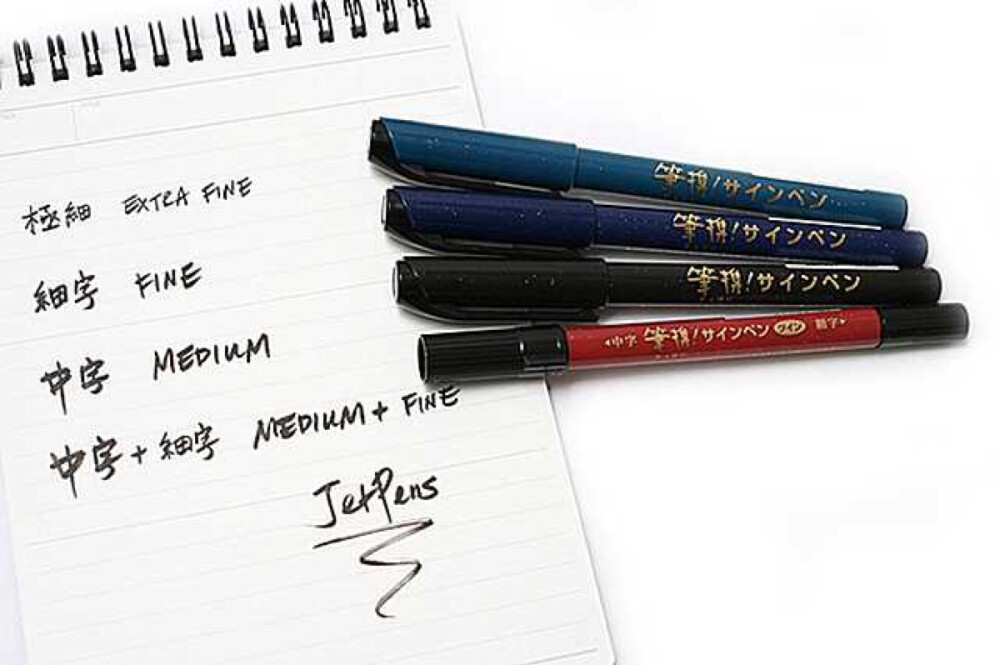 極細 EXTRA FINE
細字 FINE
中字 MEDIUM
中字+細字 MEDIUM+FINE
JetPens
筆撰!サインペン
筆撰!サインペン
筆撰!サインペン
中字 筆撰!サインペン ツイン 細字